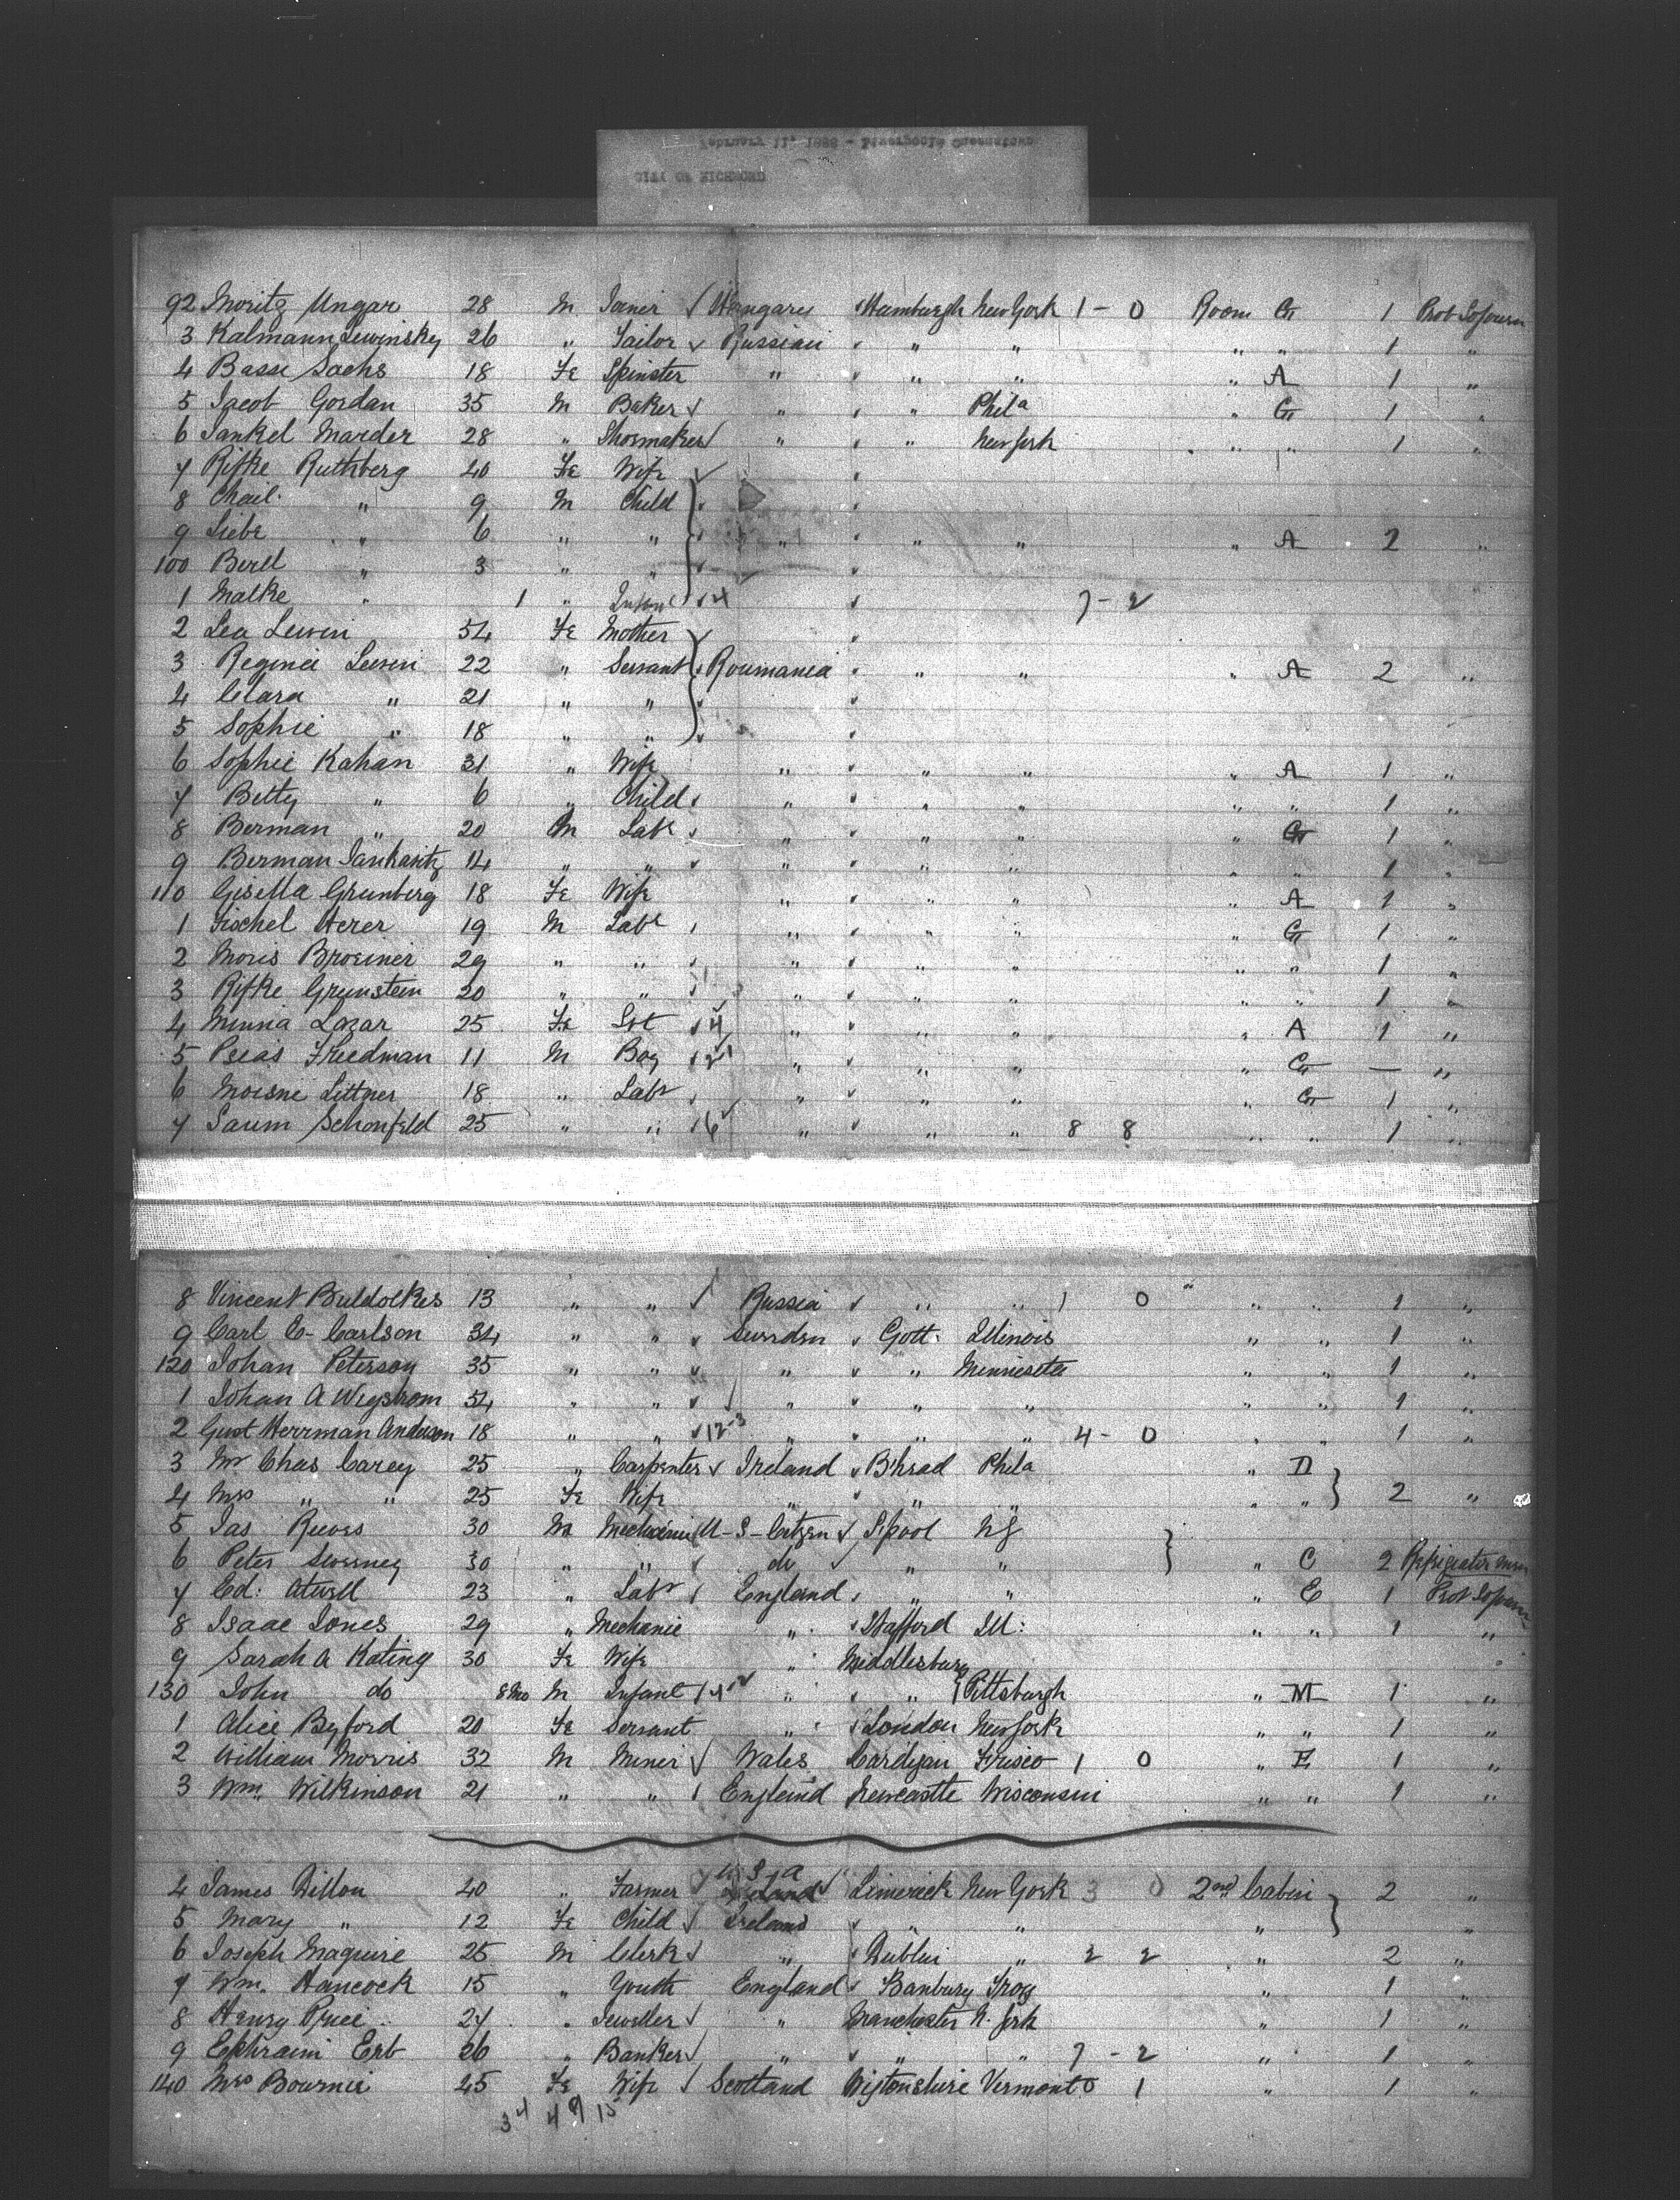 February 11, 1888 - Liverpool & Queenstown
CITY OF RICHMOND
92 Moritz Ungar 28 M Hungary Hamburgh New York 1 - 0 Room G 1 Prot Sojourn
3 Kalmann Lewinsky 26 " Tailor Russian " " " " 1 "
4 Basse Sachs 18 Fe Spinster " " " " A 1 "
5 Jacob Gordan 35 M Baker " " Phila " G 1 "
6 Jankel Marder 28 " Shoemaker " " New York " " 1 "
7 Rifke Ruthberg 40 Fe Wife
8 Chail " 9 M Child
9 Liebe " 6 " " " " " " A 2 "
100 Berel " 3 " "
1 Malke " 1 " Infant 4 7 - 2
2 Lea Lewin 54 Fe Mother
3 Regina Lewin 22 " Servant Roumania " " " A 2 "
4 Clara " 21 " "
5 Sophie " 18 " "
6 Sophie Kahan 31 " Wife " " " " A 1 "
7 Betty " 6 " Child " " " " " 1 "
8 Berman " 20 M Labr " " " " G 1 "
9 Berman Jankavitz 14 " " " " " " " 1 "
110 Gisella Grunberg 18 Fe Wife " " " " A 1 "
1 Fischel Herer 19 M Labr " " " " G 1 "
2 Moris Broeiner 29 " " " " " " " 1 "
3 Rifke Grunstein 20 " " " " " " " 1 "
4 Minna Lazar 25 Fe 4 " " " " A 1 "
5 Freedman 11 M Boy 21 " " " " G — "
6 Littner 18 " Labr " " " " G 1 "
7 Schonfeld 25 " " 6 " " " 8 8 " " 1 "
8 Vincent 13 " " Russia " " 1 0 " " 1 "
9 Carl E- Carlson 34 " " Sweden Gott: Illinois " " 1 "
120 Johan Peterson 35 " " " " Minnesota " " 1 "
1 Johan A Wegstrom 54 " " " " " " " 1 "
2 Gust Herrman Anderson 18 " " 12-3 " " " 4 - 0 " " 1 "
3 Mr Chas Carey 25 " Carpenter Ireland B'head Phila " D
4 Mrs " " 25 Fe Wife " " " " " 2 "
5 Jas Reeves 30 M Mechanic U-S-Citizen L'pool NY
6 Peter Sweeney 30 " " do " " " C 2
7 Ed: Atwell 23 " Labr England " " " E 1 Prot Sojourn
8 Isaac Jones 29 " Mechanic " Stafford Ill: " " 1 "
9 Sarah A Kating 30 Fe Wife " Middlesburg "
130 John do 8 Mo M Infant " " Pittsburgh " M 1 "
1 Alice Byford 20 Fe Servant " London New York " " 1 "
2 William Morris 32 M Miner Wales Cardigan Frisco 1 0 " E 1 "
3 Wm. Wilkinson 21 " " England Newcastle Wisconsin " " 1 "
4 James Dillon 40 " Farmer U S A Limerick New York 3 0 2nd Cabin 2 "
5 Mary " 12 Fe Child Ireland " " " "
6 Joseph Maguire 25 M Clerk " Dublin " 2 2 " 2 "
7 Wm. Hancock 15 " Youth England Banbury Troy " 1 "
8 Henry Price 27 " Jeweller " Manchester N. York " 1 "
9 Ephraim Erb 26 " Banker " " " 7 - 2 " 1 "
140 Mrs 45 Fe Wife Scotland Wigtonshire Vermont 0 1 " 1 "